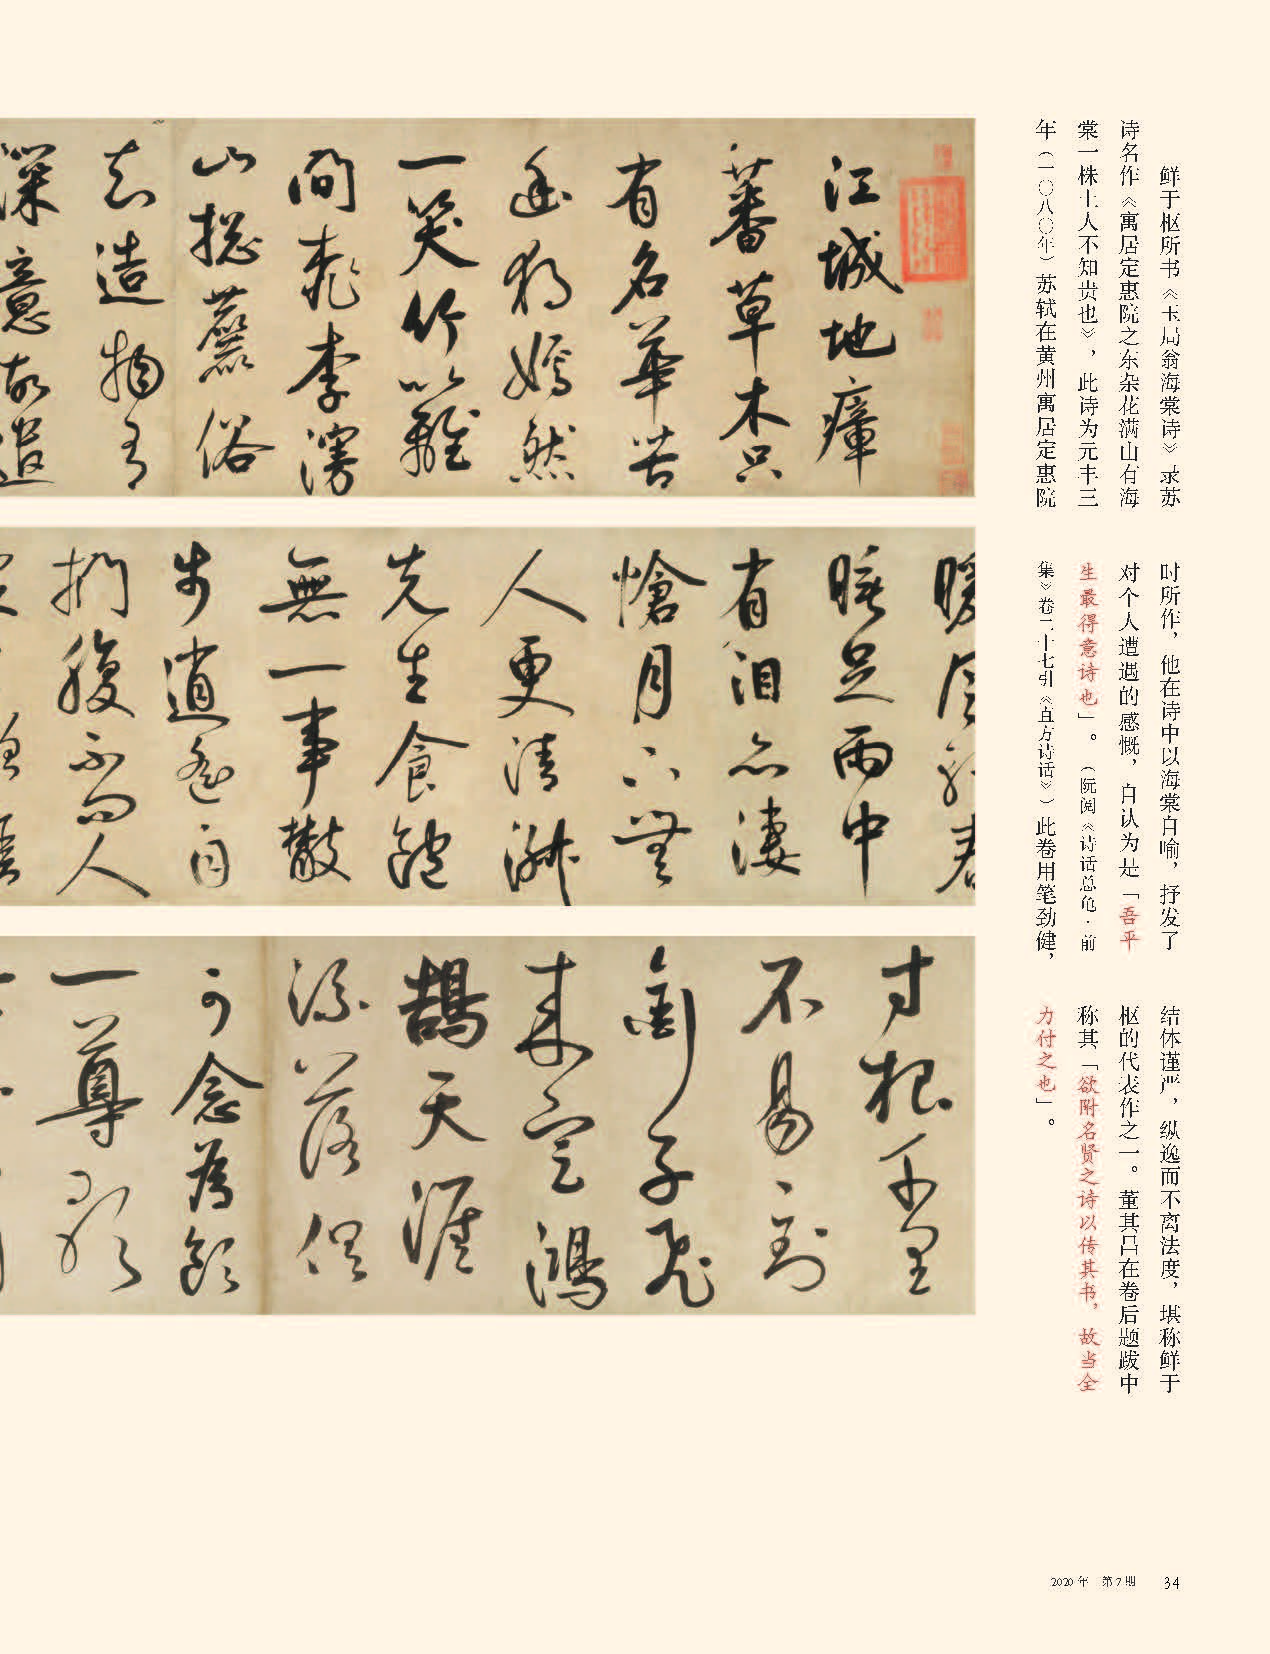 鲜于枢所书《玉局翁海棠诗》录苏
诗名作《寓居定惠院之东杂花满山有海
棠一株土人不知贵也》，此诗为元丰三
年（一〇八〇年）苏轼在黄州寓居定惠院
时所作，他在诗中以海棠自喻，抒发了
对个人遭遇的感慨，自认为是「吾平
生最得意诗也」。（阮阅《诗话总龟·前
集》卷二十七引《直方诗话》）此卷用笔劲健，
结体谨严，纵逸而不离法度，堪称鲜于
枢的代表作之一。董其昌在卷后题跋中
称其「欲附名贤之诗以传其书，故当全
力付之也」。
江城地瘴
蕃草木只
有名華苦
幽獨嫣然
一笑竹籬
間桃李漫
山總麤俗
知造物有
深意故遣
暖風輕春
睡足雨中
有淚亦凄
愴月下無
人更清淑
先生食飽
無一事散
步逍遙自
捫腹不問人
寸根千里
不易到
銜子飛
來定鴻
鵠天涯
流落俱
可念為飲
一尊歌
2020 年 第 7 期 34